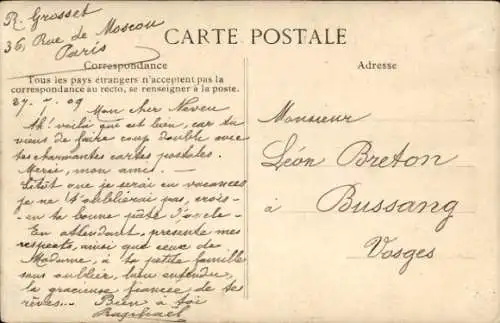 R. Grosset
36, Rue de Moscou
Paris
CARTE POSTALE
Correspondance
Adresse
Tous les pays étrangers n'acceptent pas la
correspondance au recto, se renseigner à la poste.
27. 7. 09
Mon cher Neveu
Ah! voilà qui est bien, car tu
viens de faire coup double avec
tes charmantes cartes postales.
Merci, mon ami. —
Sitôt que je serai en vacances
je ne t'oublierai pas, crois-
en ta bonne
En attendant, présente mes
respects, ainsi que ceux de
Madame, à ta petite famille
sans oublier, bien entendu,
la gracieuse fiancée de tes
rêves... Bien à toi
Raphaël
Monsieur
Léon Breton
à Bussang
Vosges